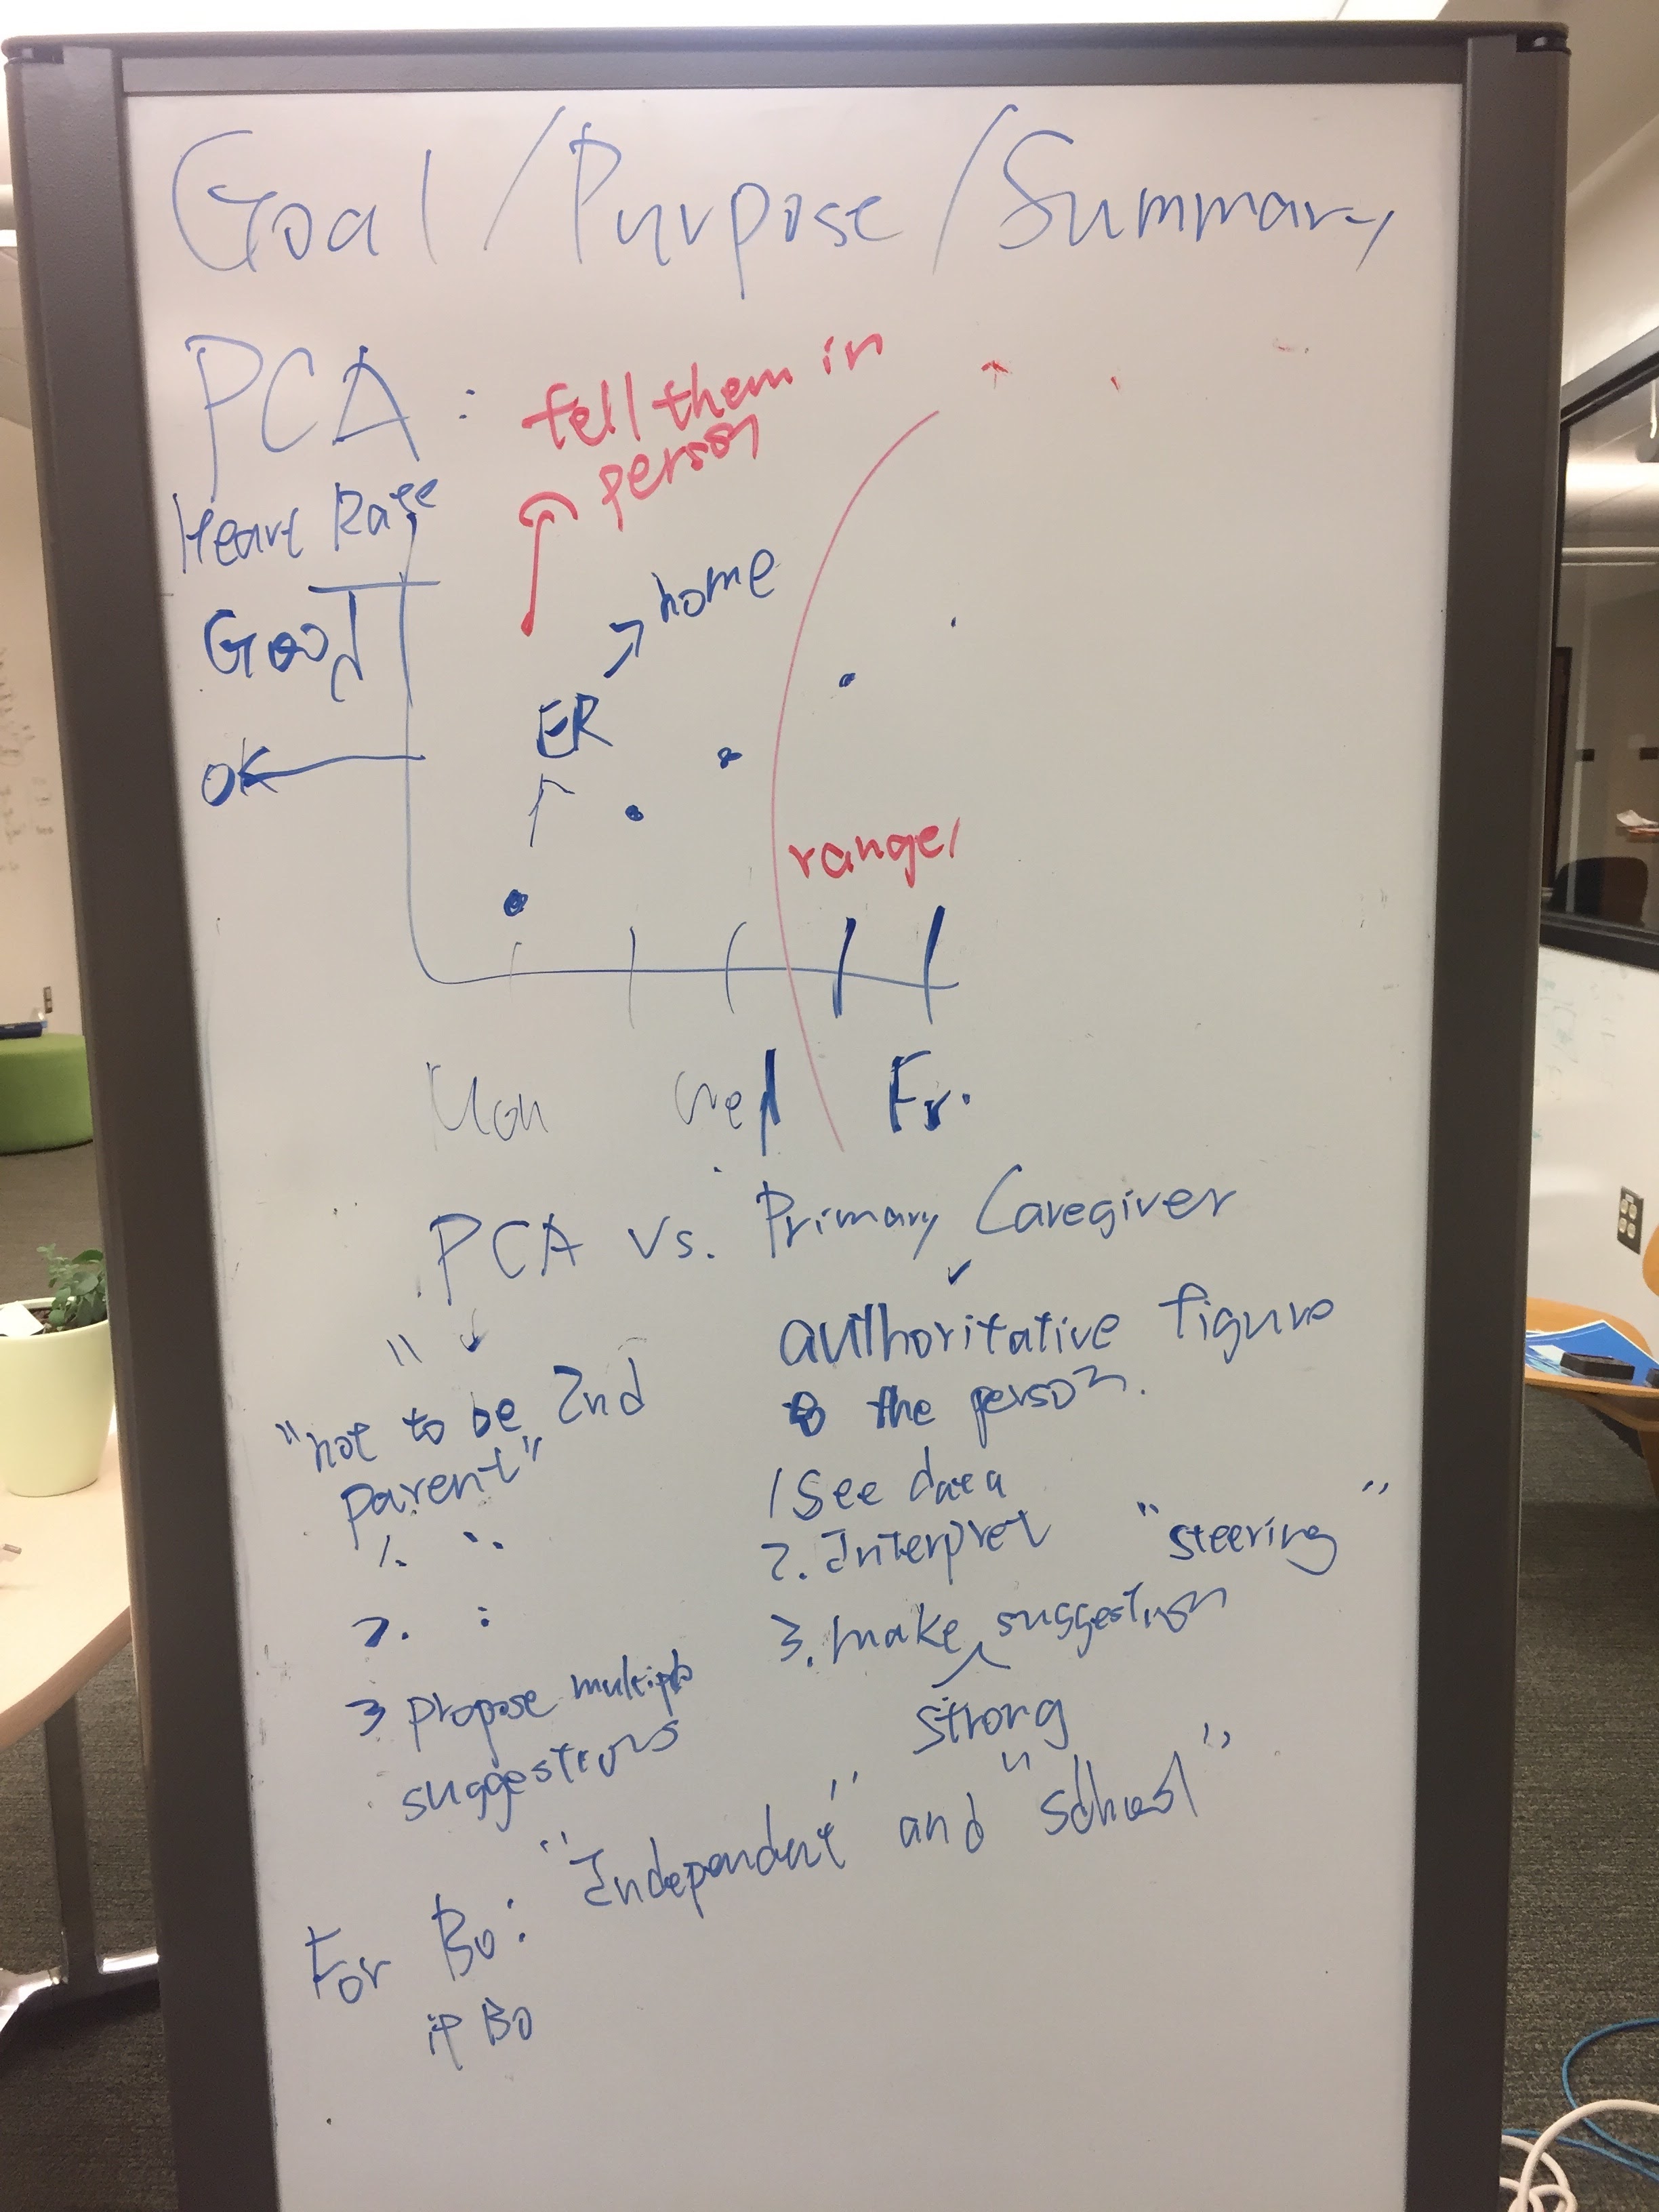 Goal/Purpose/Summary
PCA: tell them in
person
Heart Rate
home
Good
ER
OK
range
Mon Wed Fr.
PCA vs. Primary Caregiver
"not to be 2nd
parent"
1.
2. :
3 propose multiple
suggestions
authoritative figure
to the person.
1 See data
2. Interpret "steering"
3. make suggestion
strong
For Bo: "Independent" and "school"
if Bo